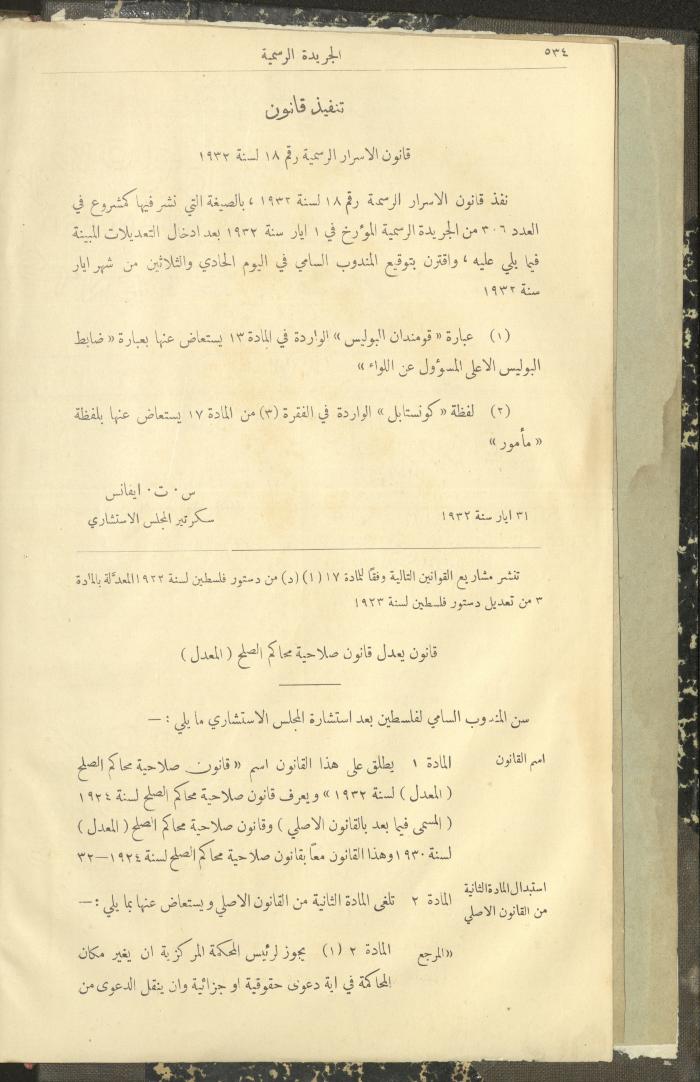 ٥٣٤
الجريدة الرسمية
تنفيذ قانون
قانون الاسرار الرسمية رقم ١٨ لسنة ١٩٣٢
نفذ قانون الاسرار الرسمية رقم ١٨ لسنة ١٩٣٢ ، بالصيغة التي نشر فيها كمشروع في
العدد ٣٠٦ من الجريدة الرسمية المؤرخ في ١ ايار سنة ١٩٣٢ بعد ادخال التعديلات المبينة
فيما يلي عليه ، واقترن بتوقيع المندوب السامي في اليوم الحادي والثلاثين من شهر ايار
سنة ١٩٣٢
(١) عبارة « قومندان البوليس » الواردة في المادة ١٣ يستعاض عنها بعبارة « ضابط
البوليس الاعلى المسؤول عن اللواء »
(٢) لفظة « كونستابل » الواردة في الفقرة (٣) من المادة ١٧ يستعاض عنها بلفظة
« مأمور »
س . ت . ايفانس
٣١ ايار سنة ١٩٣٢
سكرتير المجلس الاستشاري
تنشر مشاريع القوانين التالية وفقًا للمادة ١٧ (١) (د) من دستور فلسطين لسنة ١٩٢٢ المعدَّلة بالمادة
٣ من تعديل دستور فلسطين لسنة ١٩٢٣
قانون يعدل قانون صلاحية محاكم الصلح ( المعدل )
سن المندوب السامي لفلسطين بعد استشارة المجلس الاستشاري ما يلي : —
اسم القانون
المادة ١ يطلق على هذا القانون اسم « قانون صلاحية محاكم الصلح
( المعدل ) لسنة ١٩٣٢ » ويعرف قانون صلاحية محاكم الصلح لسنة ١٩٢٤
( المسمى فيما بعد بالقانون الاصلي ) وقانون صلاحية محاكم الصلح ( المعدل )
لسنة ١٩٣٠ وهذا القانون معًا بقانون صلاحية محاكم الصلح لسنة ١٩٢٤—٣٢
استبدال المادة الثانية
من القانون الاصلي
المادة ٢ تلغى المادة الثانية من القانون الاصلي ويستعاض عنها بما يلي : —
« المرجع
المادة ٢ (١) يجوز لرئيس المحكمة المركزية ان يغير مكان
المحاكمة في اية دعوى حقوقية او جزائية وان ينقل الدعوى من